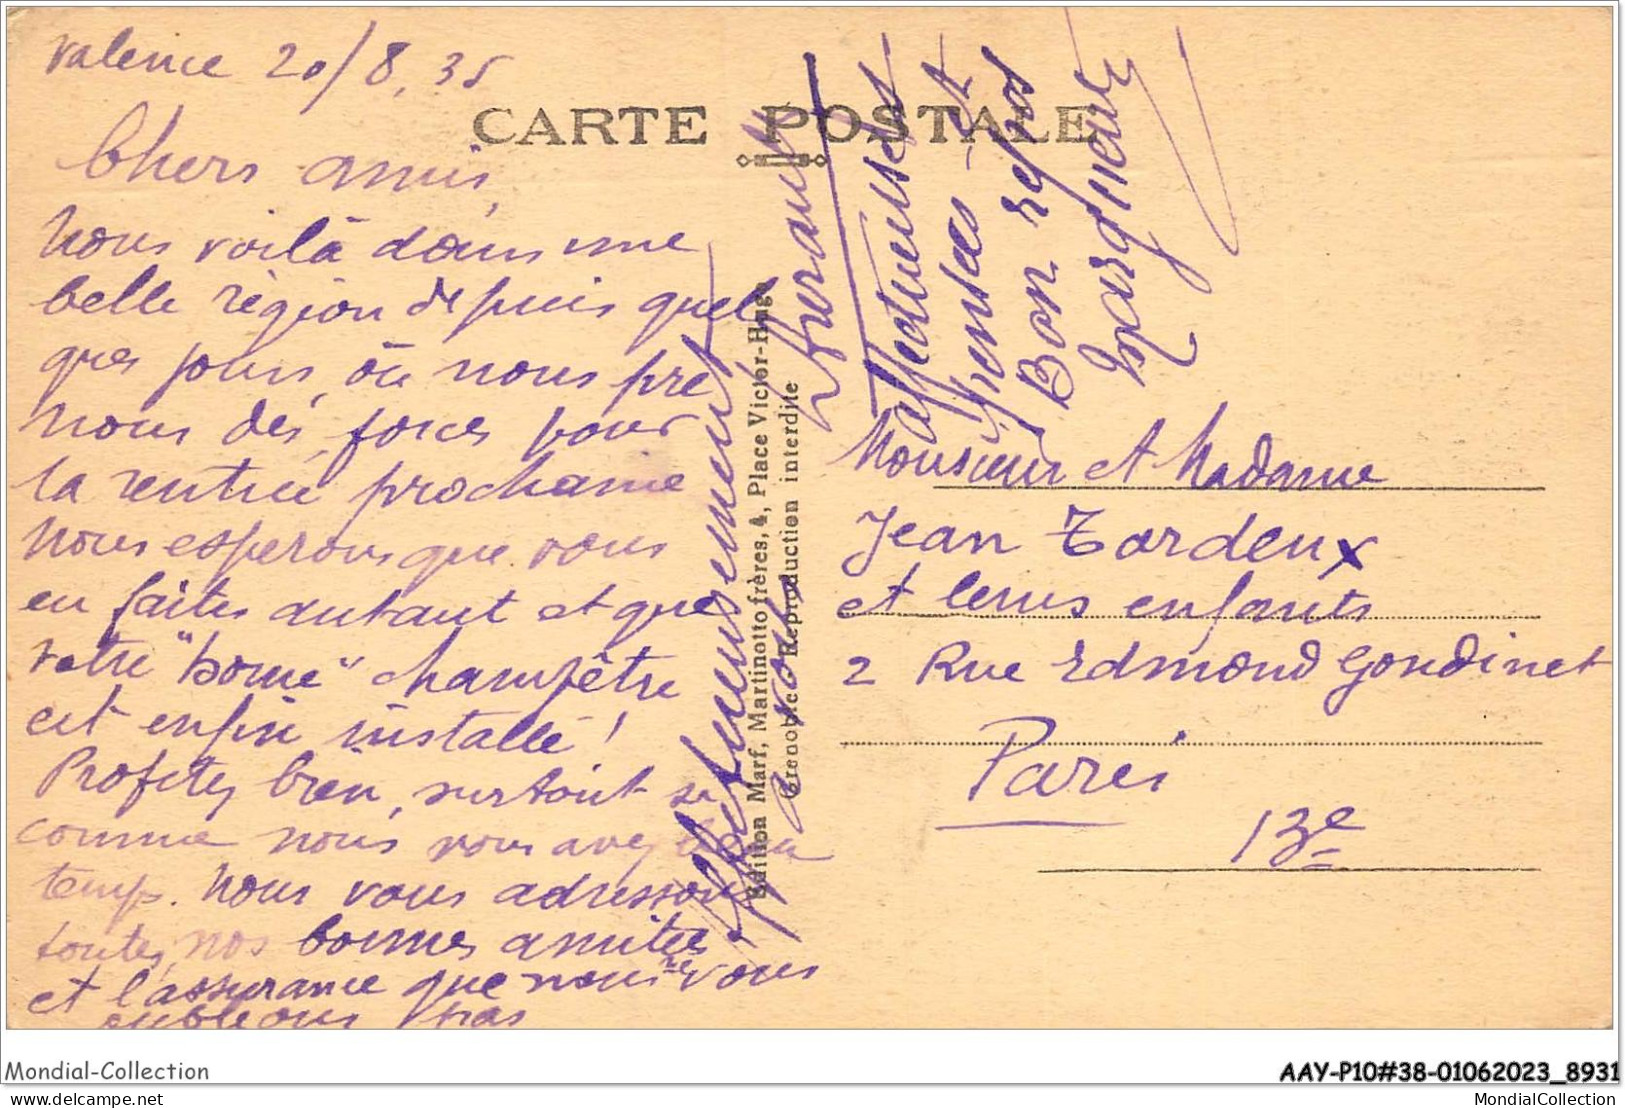 Valence 20/8.35
CARTE POSTALE
Chers amis,
Nous voilà dans une
belle région depuis quel
ques jours, où nous pre
nons des forces pour
la rentrée prochaine
Nous esperons que vous
en faites autant et que
votre "bonne" champêtre
est enfin installé !
Profitez bien, surtout si
comme nous vous avez
temps. Nous vous adressons
toutes nos bonnes amitiés
et l'assurance que nous ne vous
oublions pas
Affectueusement
à vous
Edition Marf, Martinotto frères, 4, Place Victor-Hugo
Grenoble - Reproduction interdite
Affectueuses
pensées et
Bon repos
Marguerite
Monsieur et Madame
Jean Tardeux
et leurs enfants
2 Rue Edmond Gondinet
Paris
13e
Mondial-Collection
AAY-P10#38-01062023_8931
delcampe.net
MondialCollection